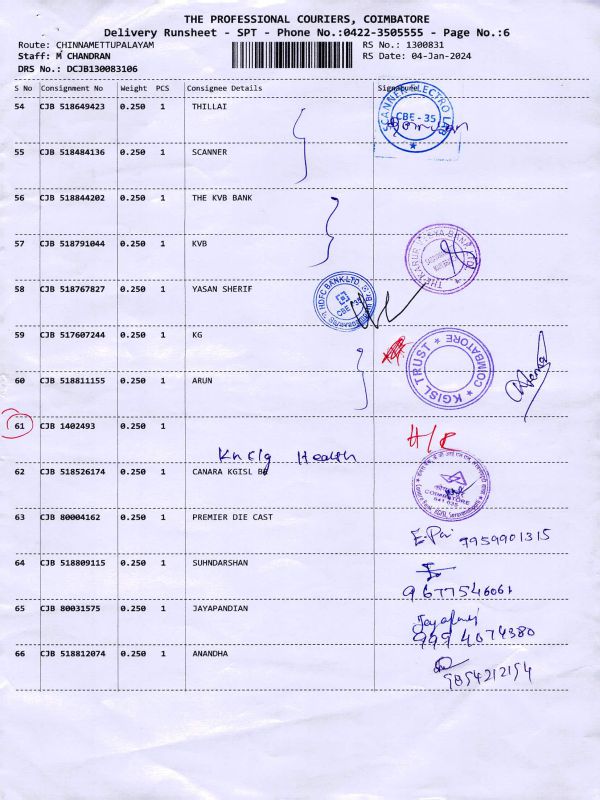 THE PROFESSIONAL COURIERS, COIMBATORE
Delivery Runsheet - SPT - Phone No.:0422-3505555 - Page No.:6
Route: CHINNAMETTUPALAYAM RS No.: 1300831
Staff: M CHANDRAN RS Date: 04-Jan-2024
DRS No.: DCJB130083106
S No Consignment No Weight PCS Consignee Details Signature
54 CJB 518649423 0.250 1 THILLAI
SCANNER ELECTRO LAB
CBE - 35
55 CJB 518484136 0.250 1 SCANNER
56 CJB 518844202 0.250 1 THE KVB BANK
57 CJB 518791044 0.250 1 KVB
THE KARUR VYSYA BANK LTD
58 CJB 518767827 0.250 1 YASAN SHERIF
HDFC BANK LTD
CBE-35
59 CJB 517607244 0.250 1 KG
KGISL TRUST COIMBATORE
60 CJB 518811155 0.250 1 ARUN
61 CJB 1402493 0.250 1
Health
62 CJB 518526174 0.250 1 CANARA KGISL B
COIMBATORE
641 035
63 CJB 80004162 0.250 1 PREMIER DIE CAST
9959901315
64 CJB 518809115 0.250 1 SUHNDARSHAN
9677546061
65 CJB 80031575 0.250 1 JAYAPANDIAN
9994074380
66 CJB 518812074 0.250 1 ANANDHA
9854212154